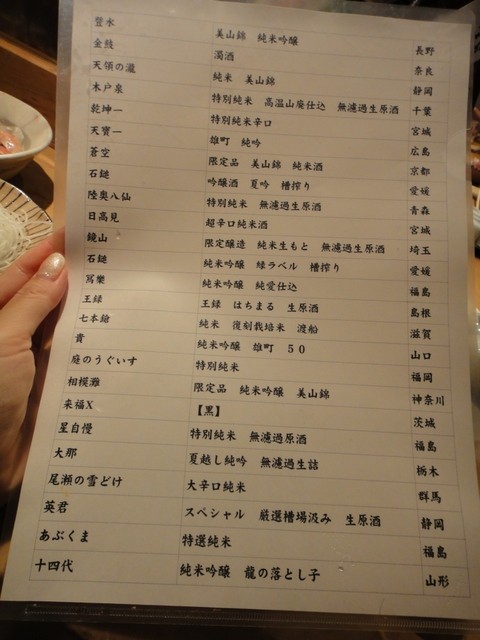 豊水 美山錦 純米吟醸 長野
金鼓 濁酒 奈良
天領の瀧 純米 美山錦 静岡
木戸泉 特別純米 高温山廃仕込 無濾過生原酒 千葉
乾坤一 特別純米辛口 宮城
天寶一 雄町 純吟 広島
蒼空 限定品 美山錦 純米酒 京都
石鎚 吟醸酒 夏吟 槽搾り 愛媛
陸奥八仙 特別純米 無濾過生原酒 青森
日高見 超辛口純米酒 宮城
鏡山 限定醸造 純米生もと 無濾過生原酒 埼玉
石鎚 純米吟醸 緑ラベル 槽搾り 愛媛
冩樂 純米吟醸 純愛仕込 福島
王録 王録 はちまる 生原酒 島根
七本鎗 純米 復刻栽培米 渡船 滋賀
貴 純米吟醸 雄町 50 山口
庭のうぐいす 特別純米 福岡
相模灘 限定品 純米吟醸 美山錦 神奈川
来福X 【黒】 茨城
星自慢 特別純米 無濾過原酒 福島
大那 夏越し純吟 無濾過生詰 栃木
尾瀬の雪どけ 大辛口純米 群馬
英君 スペシャル 厳選槽場汲み 生原酒 静岡
あぶくま 特選純米 福島
十四代 純米吟醸 龍の落とし子 山形